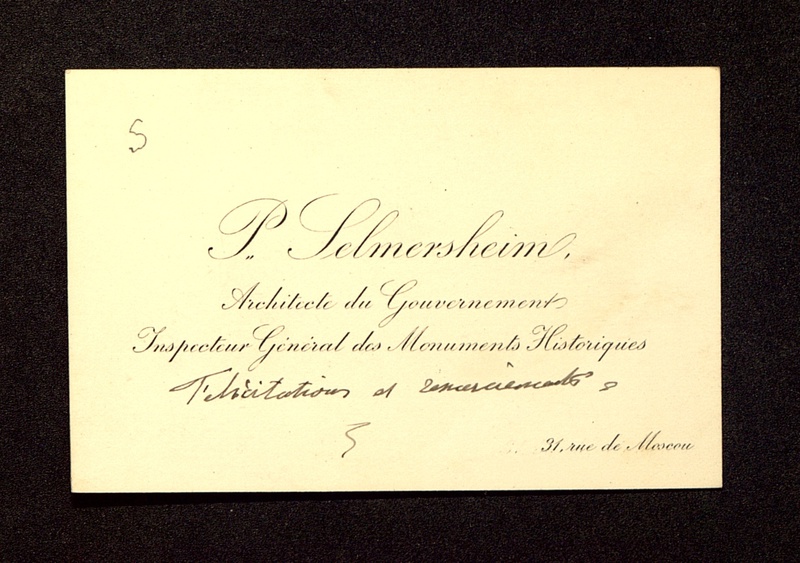 S
P. Selmersheim,
Architecte du Gouvernement
Inspecteur Général des Monuments Historiques
Félicitations et remerciements
31, rue de Moscou